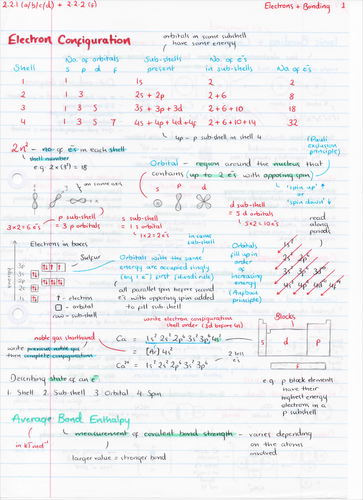 2.2.1 (a/b/c/d) + 2.2.2 (f)
Electrons + Bonding 1
Electron Configuration
orbitals in same subshell
have same energy
Shell
No. of orbitals
s p d f
Sub-shells
present
No. of e's
in sub-shells
No. of e's
1 1 1s 2 2
2 1 3 2s + 2p 2+6 8
3 1 3 5 3s + 3p + 3d 2+6+10 18
4 1 3 5 7 4s + 4p + 4d + 4f 2+6+10+14 32
4p - p sub-shell in shell 4
2n² - no. of e's in each shell
shell number
e.g. 2 × (3²) = 18
(Pauli
exclusion
principle)
Orbital - region around the nucleus that
contains (up to 2 e's with opposing spin)
an same axes
s p d
"spin up" ↑
or
"spin down" ↓
3×2=6 e's
p sub-shell
= 3 p orbitals
s subshell
= 1 s orbital
1×2=2 e's
d sub-shell
= 5 d orbitals
5×2=10 e's
read
along
periods
Electrons in boxes
in same
sub-shell
Sulfur
energy
3p
3s
2p
2s
1s
↑ - electron
□ - orbital
row - sub-shell
Orbitals with the same
energy are occupied singly
(by 1 e⁻) first (Hund's rule)
all parallel spin before second
e's with opposing spin added
to fill sub-shell
Orbitals
fill up in
order
of
increasing
energy
(Aufbau
principle)
1s²
2s² 2p⁶
3s² 3p⁶
4s²
write electron configuration
shell order (3d before 4s)
Blocks
noble gas shorthand
write previous noble gas
then complete configuration
Ca = 1s² 2s² 2p⁶ 3s² 3p⁶ 4s²
= [Ar] 4s²
Ca²⁺ = 1s² 2s² 2p⁶ 3s² 3p⁶
2 less
e's
s d p
f
Describing state of an e⁻
1. Shell 2. Sub-shell 3. Orbital 4. Spin
e.g. p block elements
have their
highest energy
electrons in a
p subshell
Average Bond Enthalpy
in kJ mol⁻¹
measurement of covalent bond strength - varies depending
on the atoms
involved
larger value = stronger bond